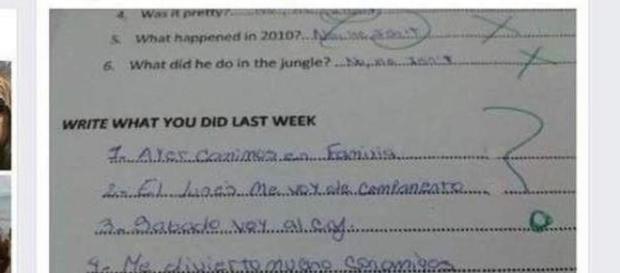 4. Was it pretty?
5. What happened in 2010?.. No, he don't
6. What did he do in the jungle? ..No, he don't
WRITE WHAT YOU DID LAST WEEK
1- Ayer comimos en Familia
2- El lunes me voy de campamento
3- Sabado voy al
4- Me divierto mucho con amigos
?